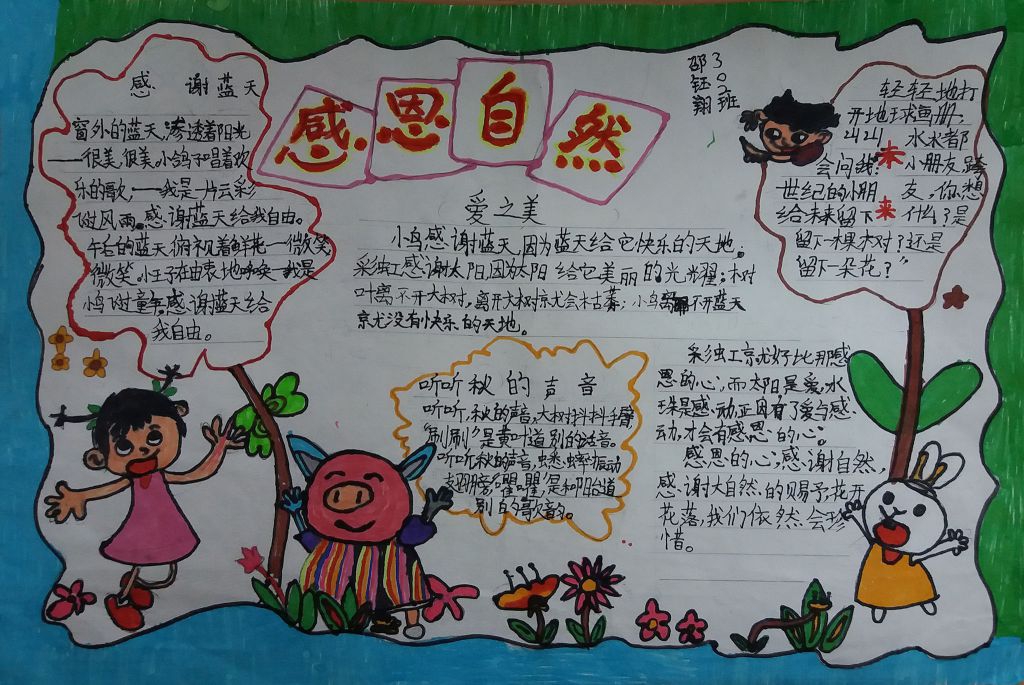 感恩自然
302班
邵钰翔
感谢蓝天
窗外的蓝天,渗透着阳光
——很美,很美,小鸽子唱着欢
乐的歌,——我是一片云彩
风雨。感谢蓝天给我自由。
的蓝天俯视着鲜花——微笑
微笑,小王子在由衷地呼唤——我是
感谢蓝天给
我自由。
爱之美
小鸟感谢蓝天,因为蓝天给它快乐的天地。
彩虹感谢太阳,因为太阳给它美丽的光耀;树
叶离不开大树,离开大树就会枯落;小鸟离不开蓝天
就没有快乐的天地。
轻轻地打
开地球画册.
山山水水都
会问我:"小朋友,跨
世纪的小朋友,你想
给未来留下什么?是
留下一棵树?还是
留下一朵花?"
未
来
听听秋的声音
听听,秋的声音,大树抖抖手臂,
"刷刷"是黄叶道别的话音。
听听,秋的声音,蟋蟀振动
翅膀,"㘗㘗"是和阳台道
别的歌韵。
彩虹就好比那感
恩的心,而太阳是爱,水
珠是感动,正因有了爱与感
动,才会有感恩的心。
感恩的心,感谢自然,
感谢大自然的赐予,花开
花落,我们依然会珍
惜。